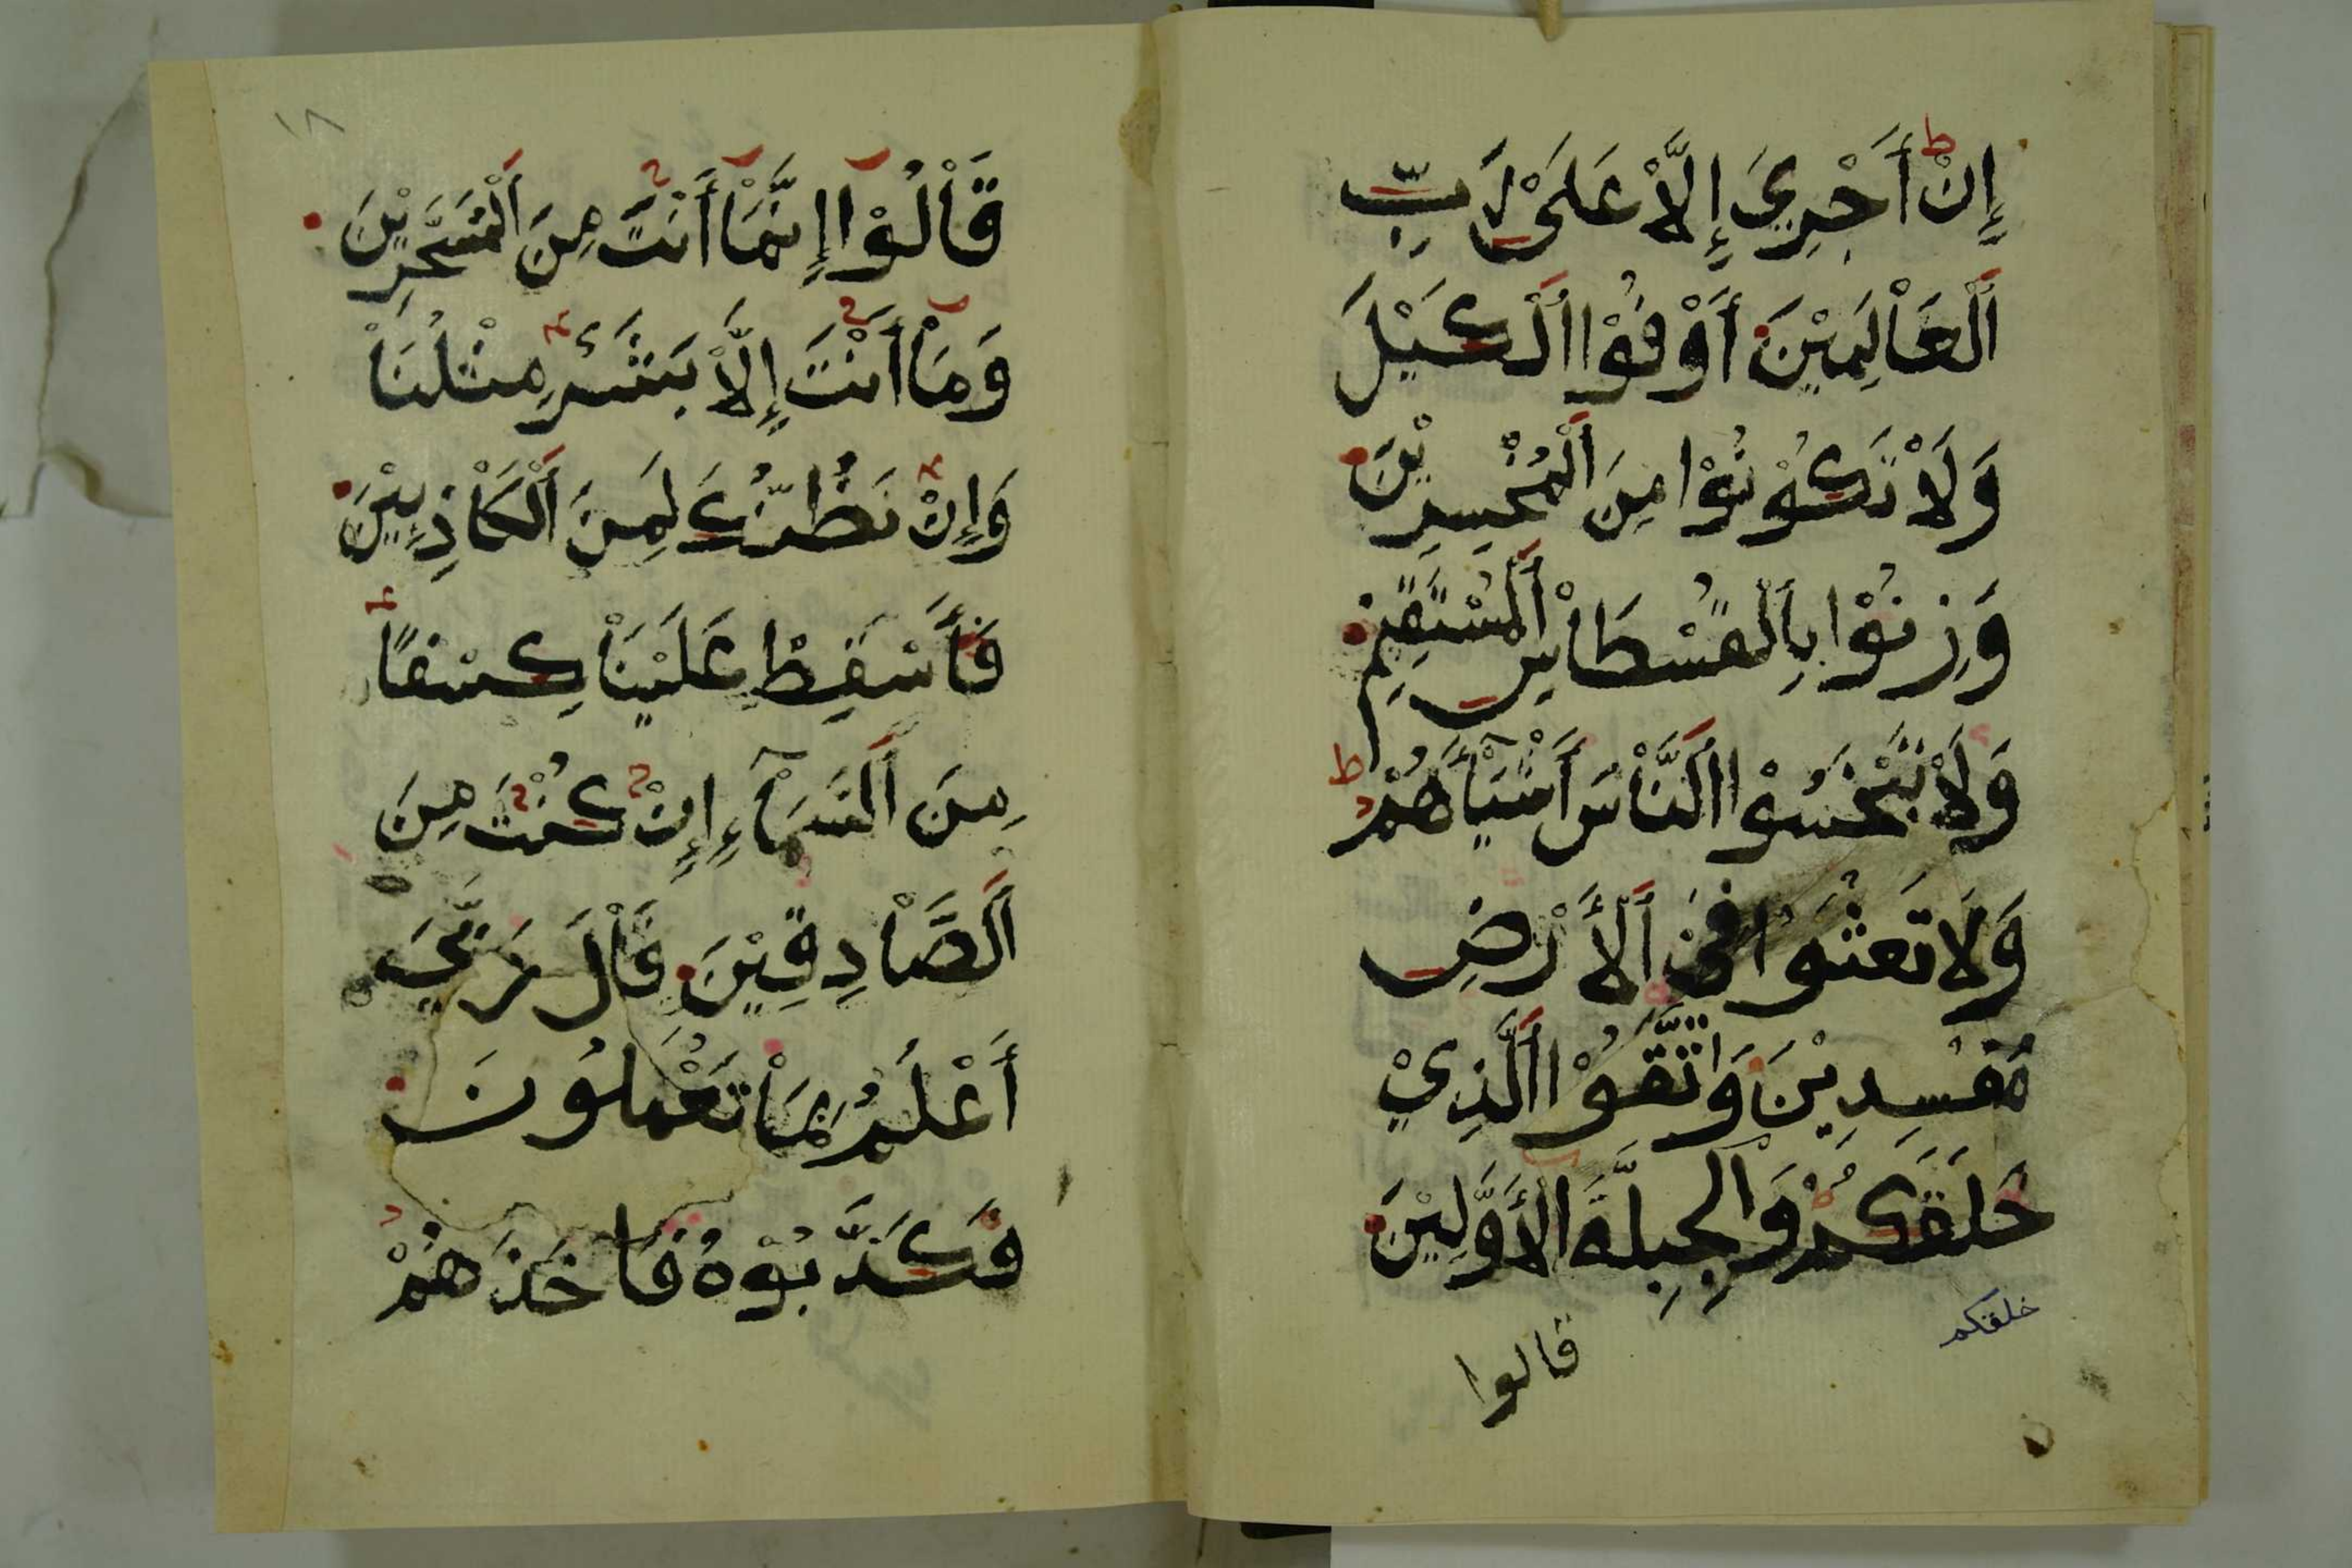 إِنْ أَجْرِيَ إِلَّا عَلَىٰ رَبِّ
الْعَالَمِيْنَ أَوْفُوْا الْكَيْلَ
وَلَا تَكُوْنُوْا مِنَ الْمُخْسِرِيْنَ
وَزِنُوْا بِالْقُسْطَاسِ الْمُسْتَقِيْمِ
وَلَا تَبْخَسُوْا النَّاسَ أَشْيَآءَهُمْ
وَلَا تَعْثَوْا فِي الْأَرْضِ
مُفْسِدِيْنَ وَاتَّقُوْا الَّذِيْ
خَلَقَكُمْ وَالْجِبِلَّةَ الْأَوَّلِيْنَ
خلقكم
قالوا
١٨
قَالُوْآ إِنَّمَآ أَنْتَ مِنَ الْمُسَحَّرِيْنَ
وَمَآ أَنْتَ إِلَّا بَشَرٌ مِثْلُنَا
وَإِنْ نَظُنُّكَ لَمِنَ الْكَاذِبِيْنَ
فَأَسْقِطْ عَلَيْنَا كِسْفًا
مِنَ السَّمَآءِ إِنْ كُنْتَ مِنَ
الصَّادِقِيْنَ قَالَ رَبِّيَ
أَعْلَمُ بِمَا تَعْمَلُوْنَ
فَكَذَّبُوْهُ فَاخَذَهُمْ